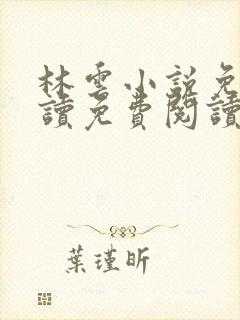 林雲小說免
讀免費閱讀
葉瑾昕